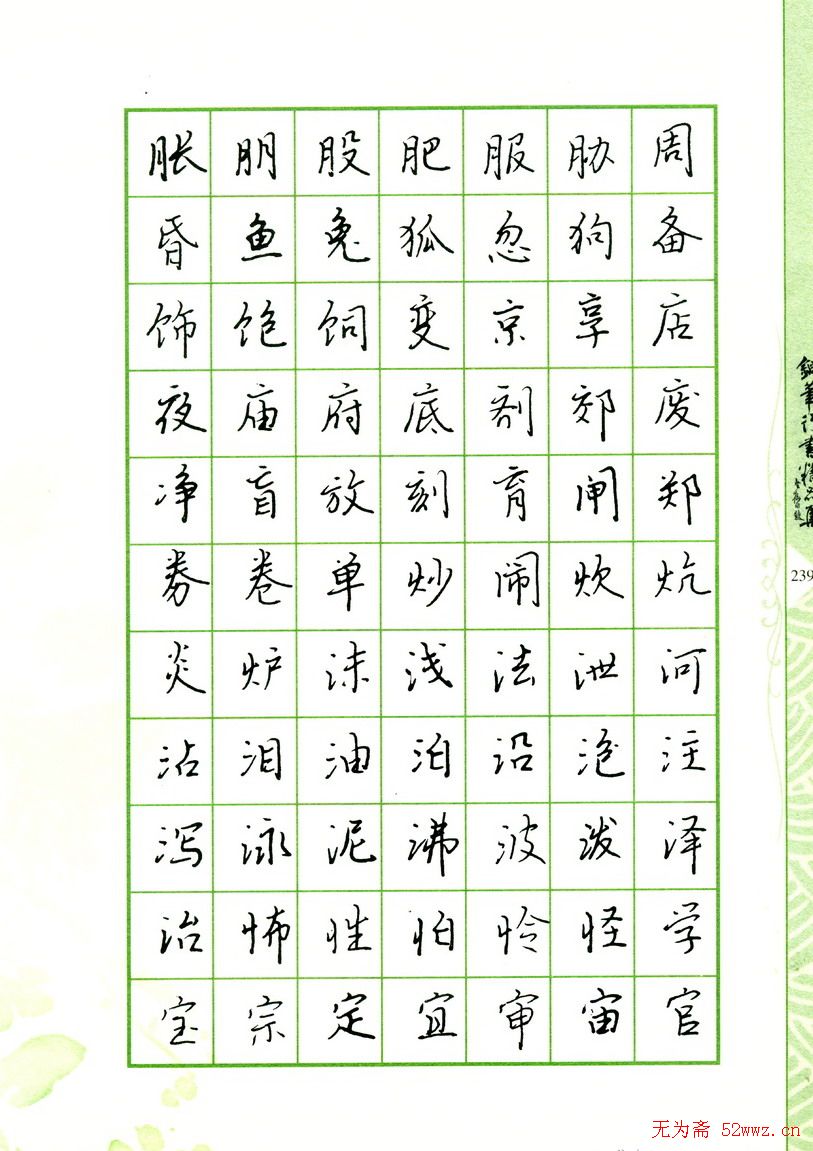 胀朋股肥服胁周
昏鱼兔狐忽狗备
饰饱饲变京享店
夜庙府底剂郊废
净盲放刻育闸郑
券卷单炒闹炊炕
炎炉沫浅法泄河
沾泪油泊沿泡注
泻泳泥沸波泼泽
治怖性怕怜怪学
宝宗定宜审宙官
239
无为斋 52wwz.cn